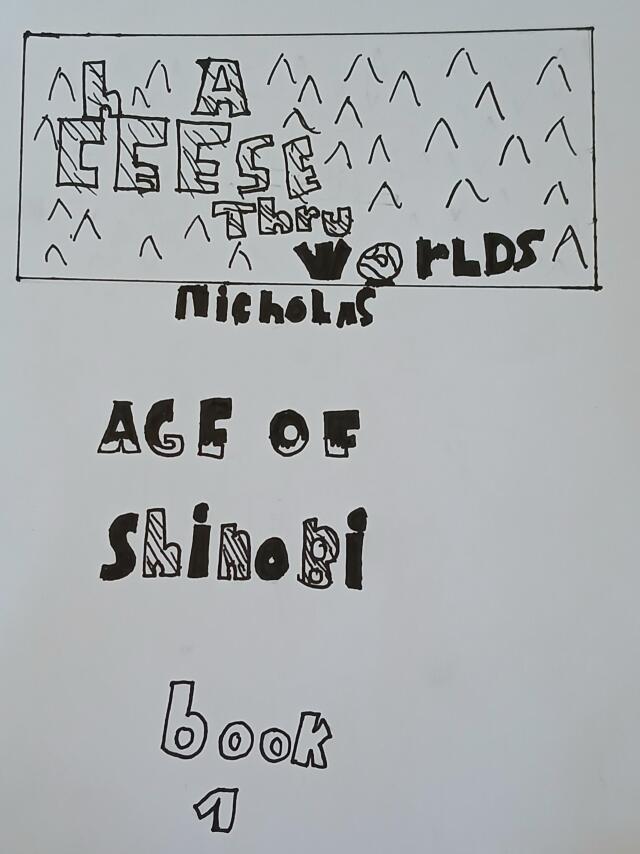 h A
CEESE
Thru
WorLDS
NichoLAS
AGE OF
ShinoBi
book
1